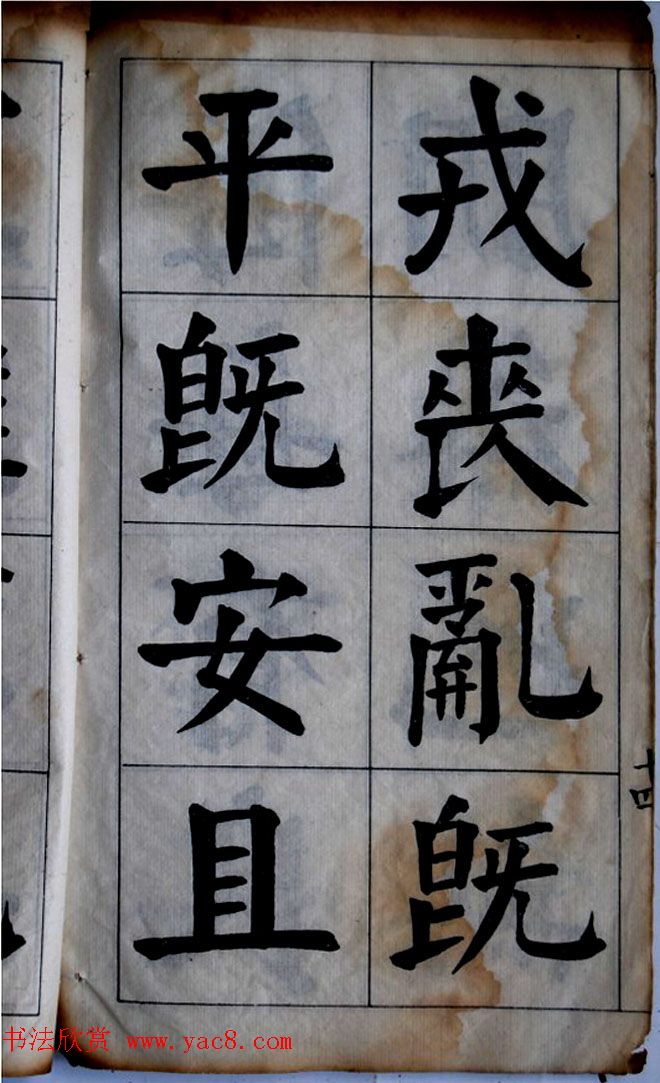 戎喪亂既
平既安且
十四
书法欣赏 www.yac8.com